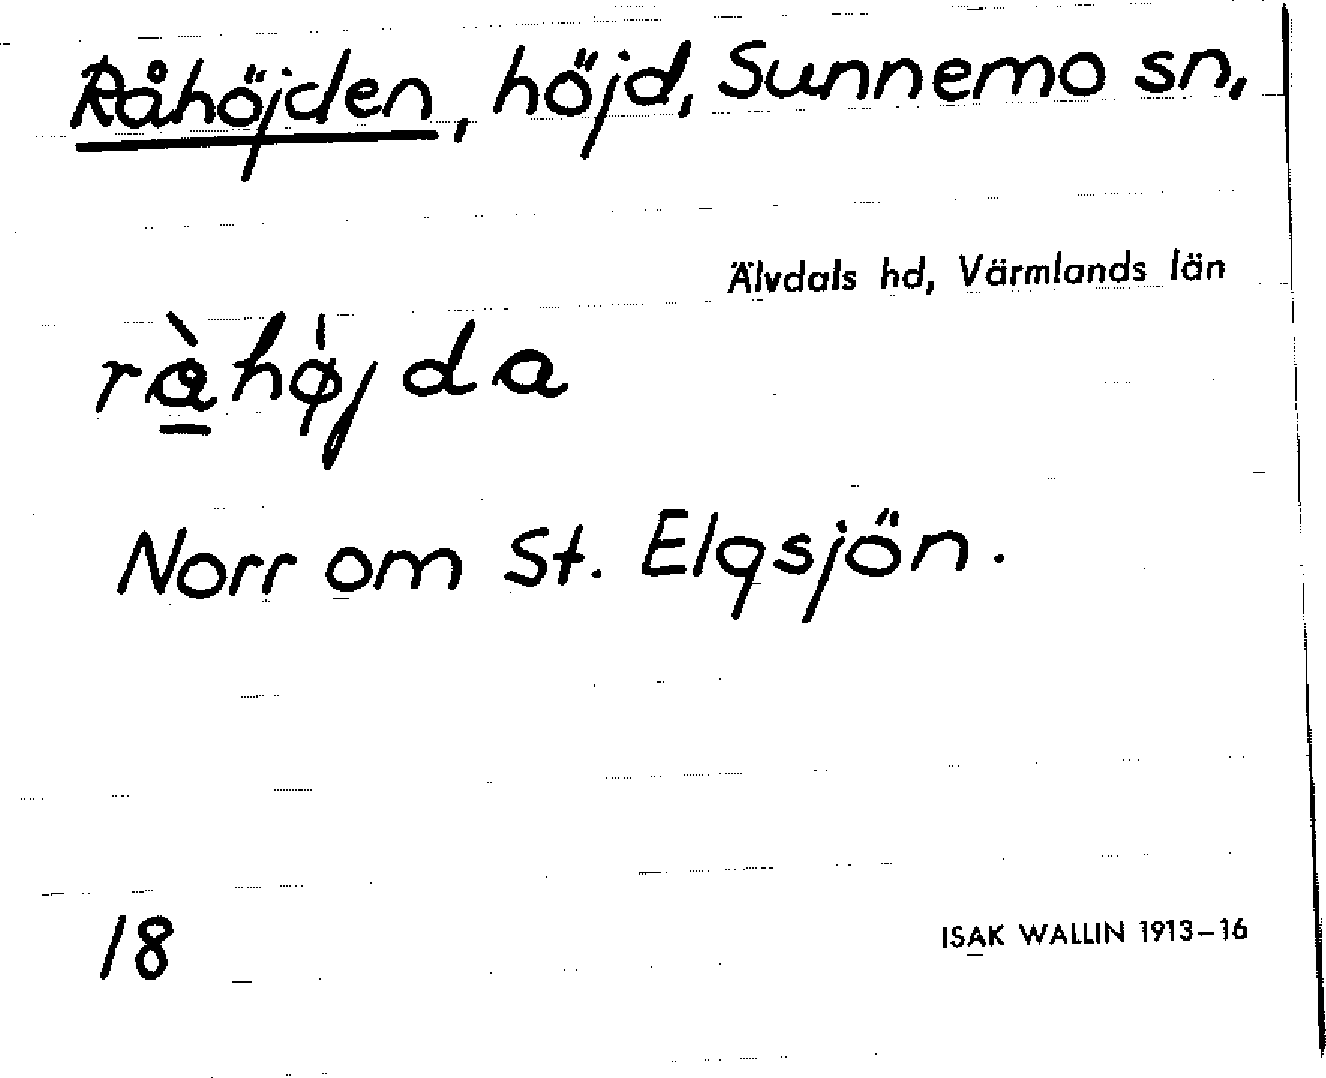 Råhöjden, höjd, Sunnemo sn,
Älvdals hd, Värmlands län
rå̀hø̀jda
Norr om St. Elgsjön.
18
ISAK WALLIN 1913–16